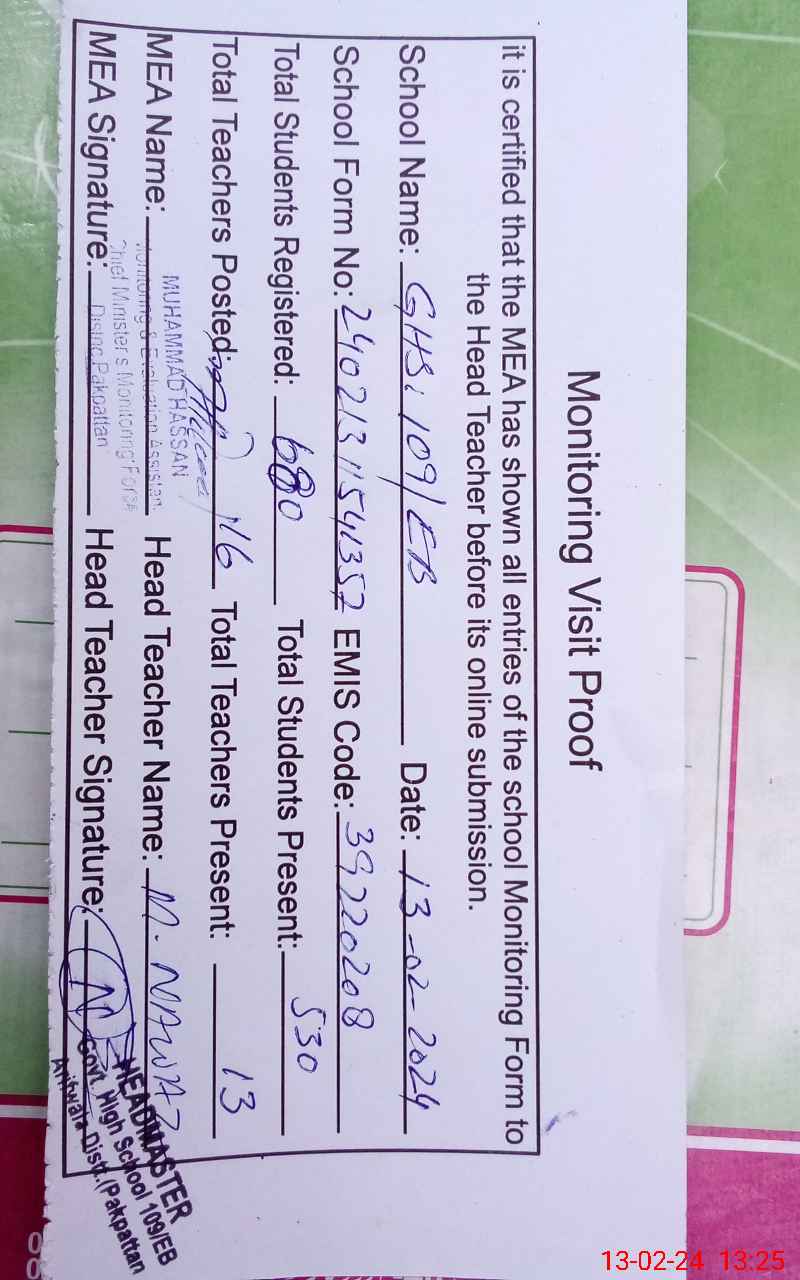 Monitoring Visit Proof
it is certified that the MEA has shown all entries of the school Monitoring Form to
the Head Teacher before its online submission.
School Name: GHS: 109/EB Date: 13-02-2024
School Form No: 24021311541357 EMIS Code: 39220208
Total Students Registered: 680 Total Students Present: 530
Total Teachers Posted: 16 Total Teachers Present: 13
MEA Name: MUHAMMAD HASSAN Head Teacher Name: M. NAWAZ
Monitoring & Evaluation Assistan
Chief Minister's Monitoring Force
Distric Pakpattan
MEA Signature: Head Teacher Signature:
HEADMASTER
Govt. High School 109/EB
Arifwala Distt.(Pakpattan
13-02-24 13:25